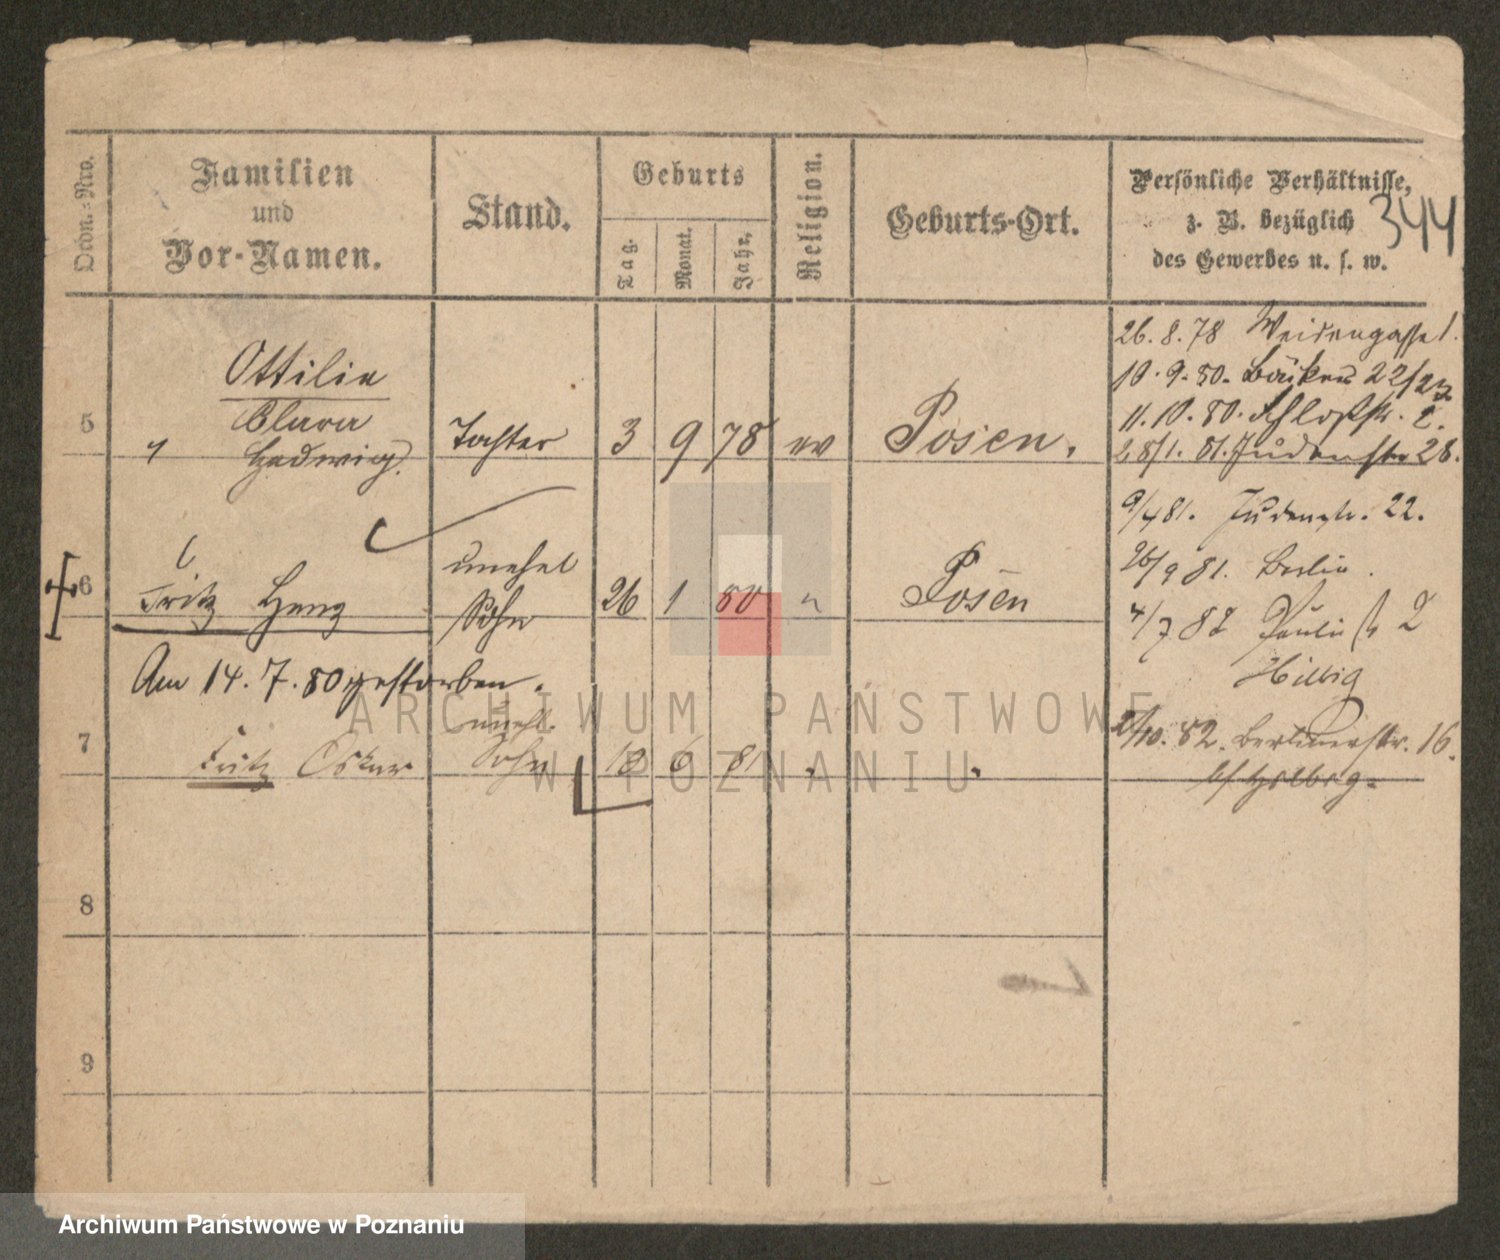 Ordn.-Nro.
Familien
und
Vor-Namen.
Stand.
Geburts
Tag.
Monat.
Jahr.
Religion.
Geburts-Ort.
Persönliche Verhältnisse,
z. B. bezüglich
des Gewerbes u. s. w.
344
5
Ottilie
Clara
Hedwig.
Tochter
3 9 78 ev
Posen.
26. 8. 78 Weidengasse 1.
10. 9. 80. Bäcker 22/23
11. 10. 80. Schloßstr. 2.
28/1. 81. Judenstr 28.
9/4 81. Judenstr. 22.
26/9 81. Berlin.
6
Fritz Hans
unehel
Sohn
26 1 80 "
Posen
4/7 82 Paulistr 2
Am 14. 7. 80 gestorben.
7
Fritz Oskar
unehl.
Sohn
18 6 81
/10. 82. Berlinerstr. 16.
8
9
ARCHIWUM PAŃSTWOWE
W POZNANIU
Archiwum Państwowe w Poznaniu